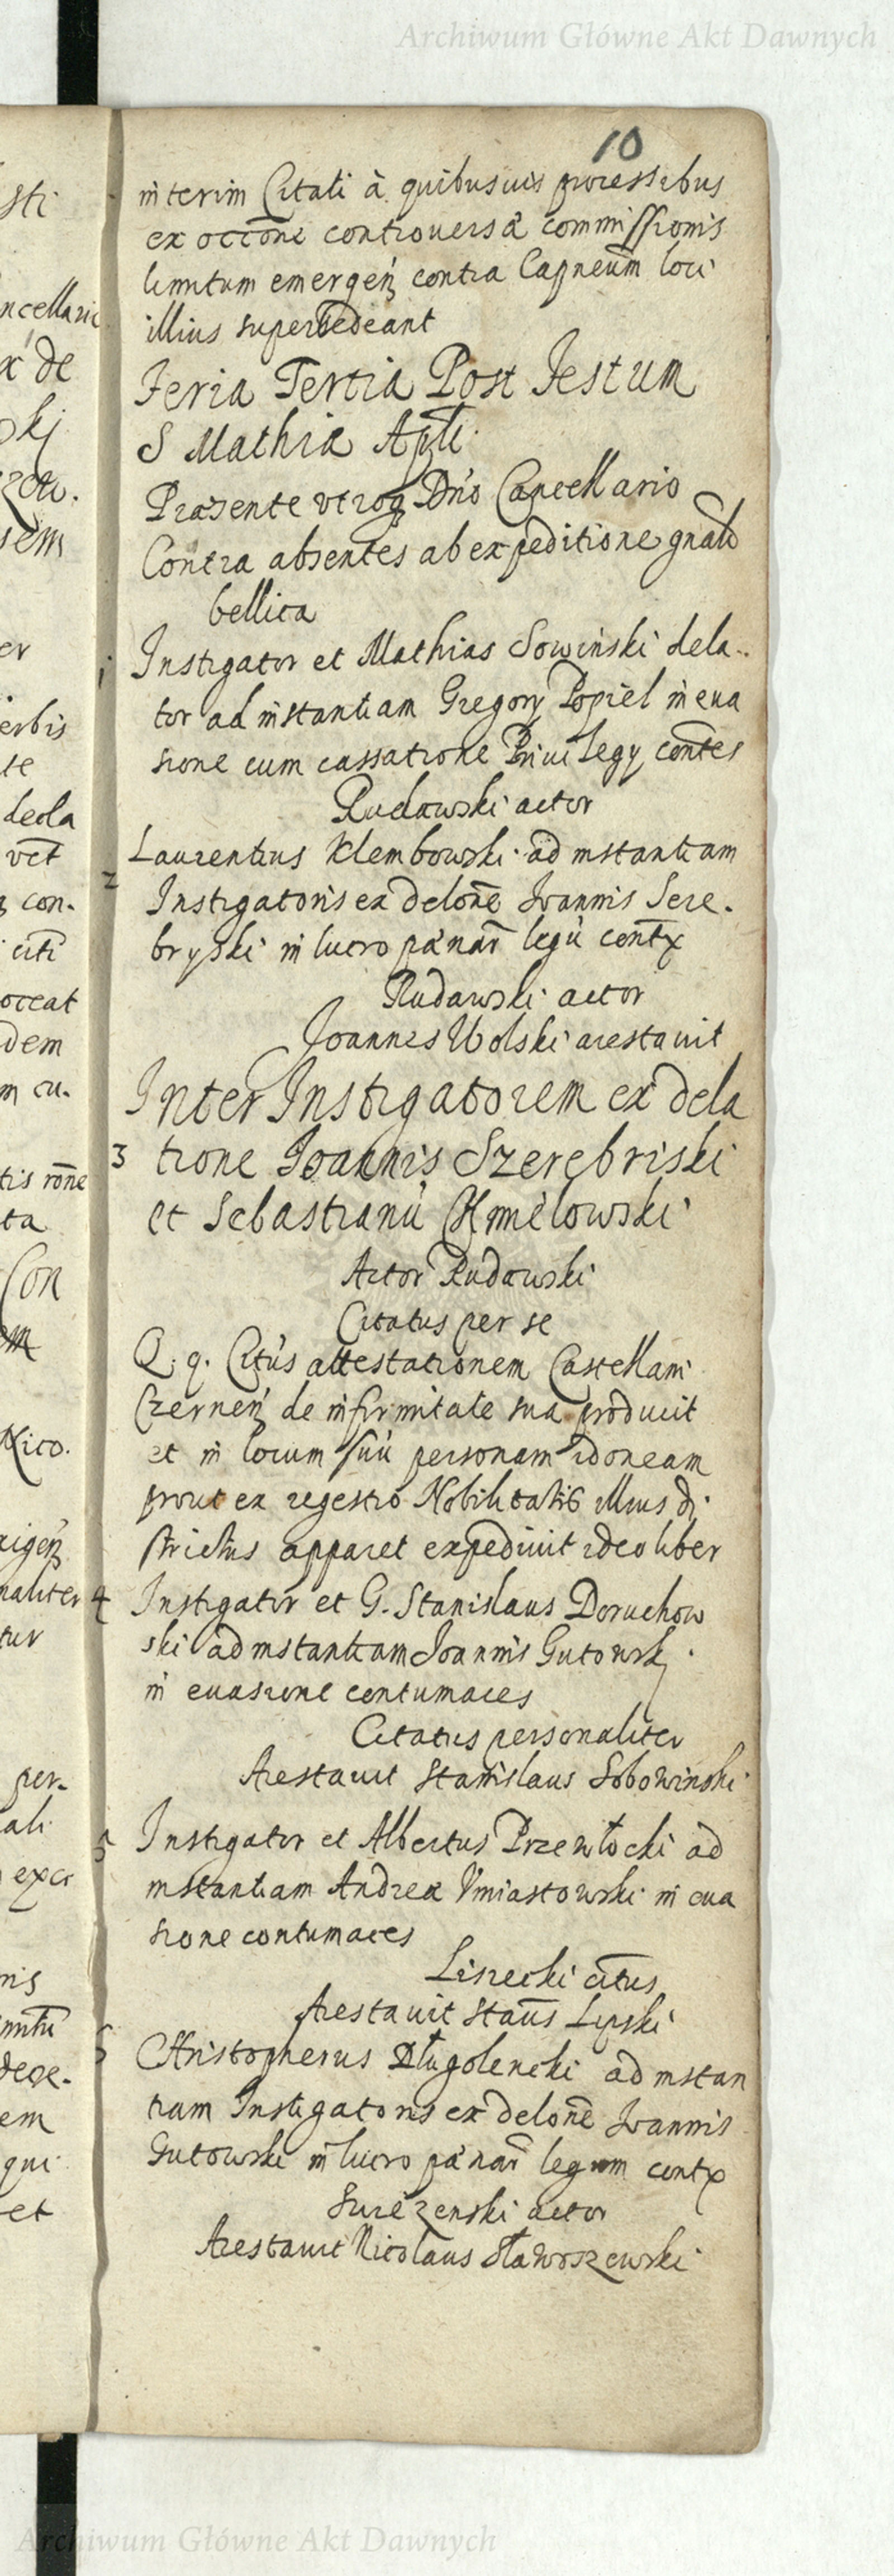 Archiwum Główne Akt Dawnych
10
interim Citati à quibusuis processibus
ex occōne controuersæ commissionis
limitum emergeń contra Capneūm loci
illius supersedeant
Feria Tertia Post Festum
S Mathiæ Apłi
Præsente vtroq Dńo Cancellario
Contra absentes ab expeditione gnali
bellica
1 Instigator et Mathias Sowinski dela-
tor ad instantiam Gregory Popiel in eua
sione cum cassatione Priuilegy contēs
Rudawski actor
2 Laurentius Klembowski ad instantiam
Instigatoris ex delonē Ioannis Sere-
bryski in lucro pænar legū contx
Rudawski actor
Joannes Wolski arestauit
Inter Instigatorem ex dela
3 tione Joannis Szerebriski
et Sebastianū Chmielowski
Actor Rudowski
Citatus per se
Q. q. Citús attestationem Castellani
Czerneń de infirmitate sua producit
et in locum suū personam idoneam
prout ex regestro Nobilitatis illius di-
strictus apparet expediuit ideo liber
4 Instigator et G. Stanislaus Doruchow
ski ad instantiam Joannis Gutowskj
in euasione contumaces
Citatus personaliter
Arestauit Stanislaus Sobowinski
5 Instigator et Albertus Przewłocki ad
instantiam Andreæ Vmiastowski in eua
sione contumaces
Lisiecki citus
Arestauit Staūs Lipski
Christopherus Długolencki ad instan
tiam Instigatoris ex delonē Ioannis
Gutowski in lucro pænar legum contx
actor
Arestauit Nicolaus Sławoszewski
Archiwum Główne Akt Dawnych